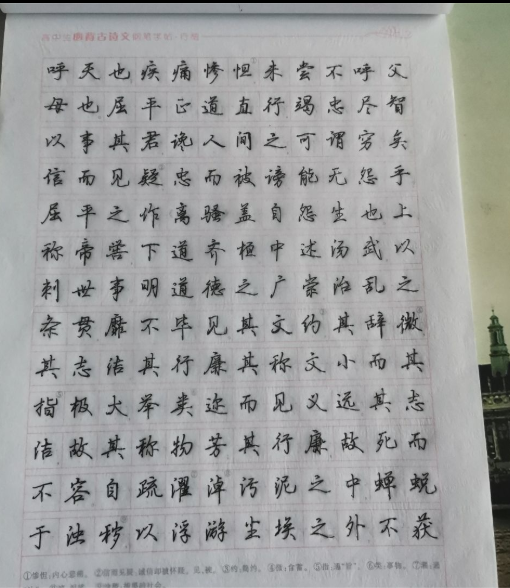 高中生必背古诗文
呼天也疾痛惨怛未尝不呼父
母也屈平正道直行竭忠尽智
以事其君谗人间之可谓穷矣
信而见疑忠而被谤能无怨乎
屈平之作离骚盖自怨生也上
称帝喾下道齐桓中述汤武以
刺世事明道德之广崇治乱之
条贯靡不毕见其文约其辞微
其志洁其行廉其称文小而其
指极大举类迩而见义远其志
洁故其称物芳其行廉故死而
不容自疏濯淖污泥之中蝉蜕
于浊秽以浮游尘埃之外不获